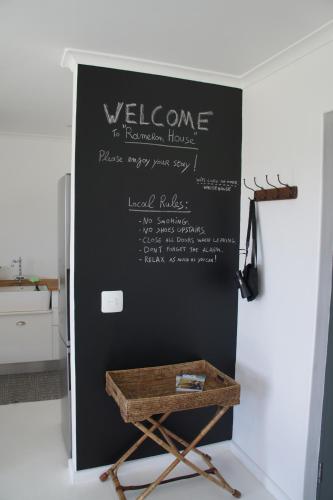 WELCOME
To "Ramelon House"
Please enjoy your stay!
Local Rules:
- NO SMOKING.
- NO SHOES UPSTAIRS.
- CLOSE ALL DOORS WHEN LEAVING.
- DON'T FORGET THE ALARM.
- RELAX AS MUCH AS YOU CAN!